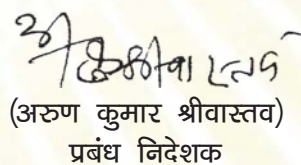 (अरुण कुमार श्रीवास्तव)
प्रबंध निदेशक